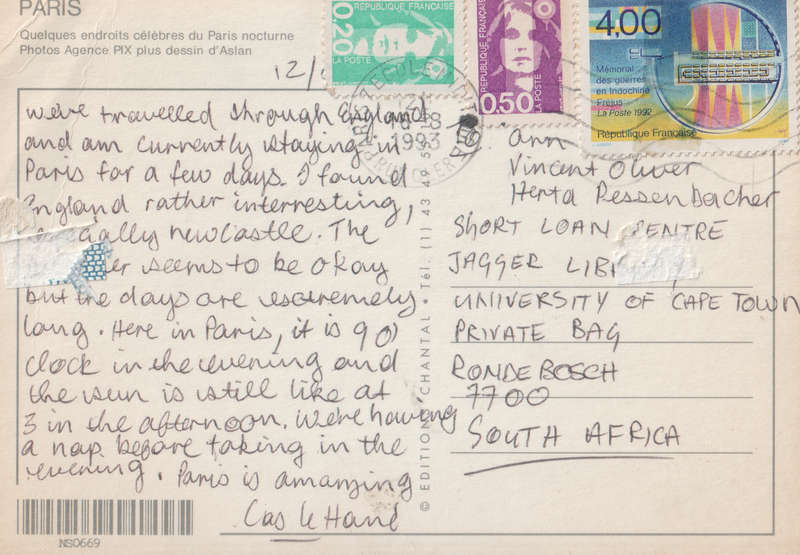 PARIS
Quelques endroits célèbres du Paris nocturne
Photos Agence PIX plus dessin d'Aslan
12/
0,20
LA POSTE
RÉPUBLIQUE FRANÇAISE
0,50
LA POSTE
RÉPUBLIQUE FRANÇAISE
4,00
Mémorial
des guerres
en Indochine
Fréjus
La Poste 1992
République Française
1993
we've travelled through England
and am currently staying in
Paris for a few days. I found
England rather interresting,
newcastle. The
seems to be okay
but the days are extremely
long. Here in Paris, it is 90'
clock in the evening and
the sun is still like at
3 in the afternoon. We're having
a nap before taking in the
evening. Paris is amanzing
Cas
© EDITIONS CHANTAL • Tél. (1) 43 49 5
Ann
Vincent Oliver
Herta Pessenbacher
SHORT LOAN CENTRE
JAGGER
UNIVERSITY OF CAPE TOWN
PRIVATE BAG
RONDEBOSCH
7700
SOUTH AFRICA
NS0669